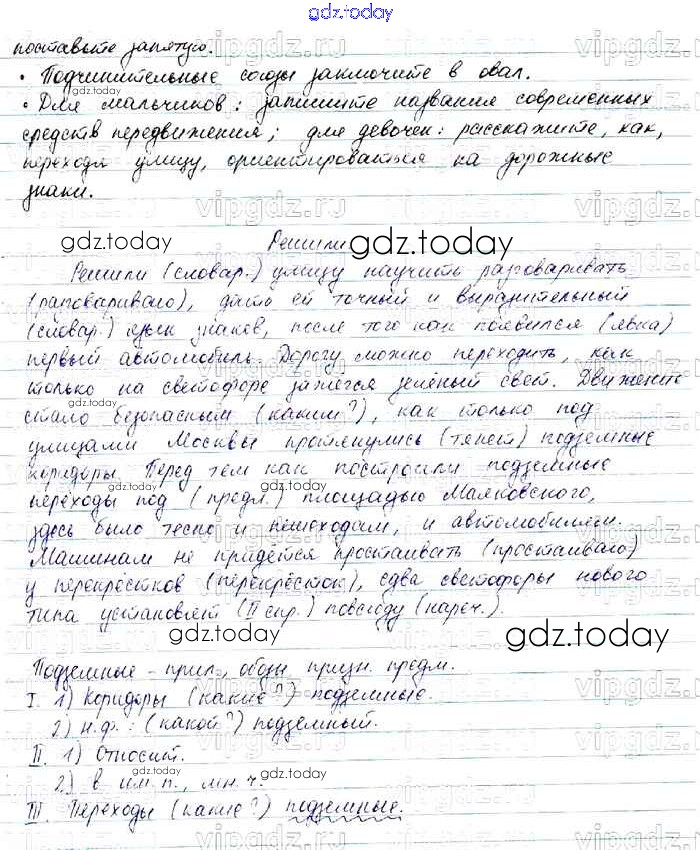 gdz.today
поставьте запятую.
• Подчинительные союзы заключите в овал.
• Для мальчиков: запишите названия современных
средств передвижения; для девочек: расскажите, как,
переходя улицу, ориентироваться на дорожные
знаки.
Решили
Решили (словар.) улицу научить разговаривать
(разговариваю), дать ей точный и выразительный
(словар.) язык знаков, после того как появился (явка)
первый автомобиль. Дорогу можно переходить, как
только на светофоре зажёгся зелёный свет. Движение
стало безопасным (каким?), как только под
улицами Москвы протянулись (тянет) подземные
коридоры. Перед тем как построили подземные
переходы под (предл.) площадью Маяковского,
здесь было тесно и пешеходам, и автомобилям.
Машинам не придётся простаивать (простаиваю)
у перекрёстков (перекрёсток), едва светофоры нового
типа установят (II спр.) повсюду (нареч.).
Подземные - прил., обозн. призн. предм.
I. 1) Коридоры (какие?) подземные.
2) н.ф.: (какой?) подземный.
II. 1) Относит.
2) в им.п., мн.ч.
III. Переходы (какие?) подземные.